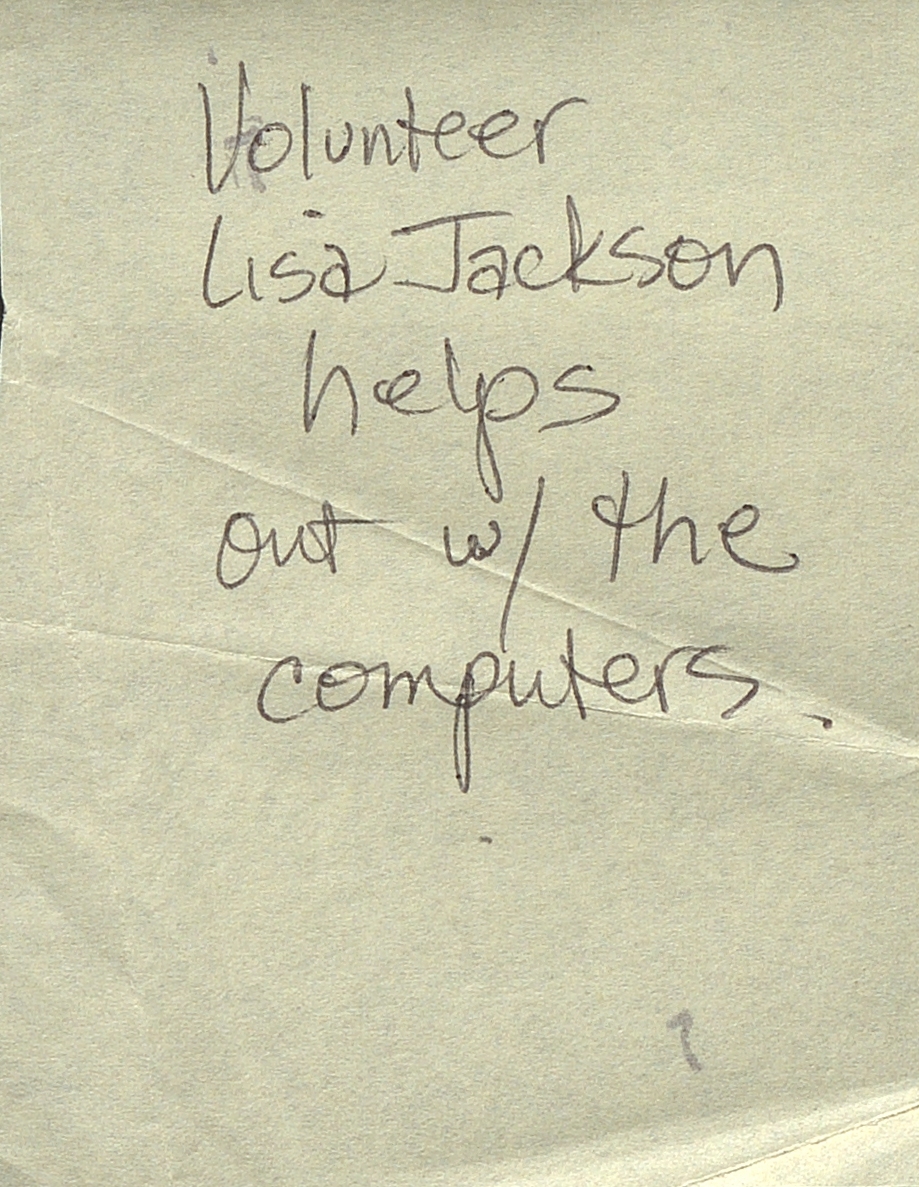 Volunteer
Lisa Jackson
helps
out w/ the
computers.